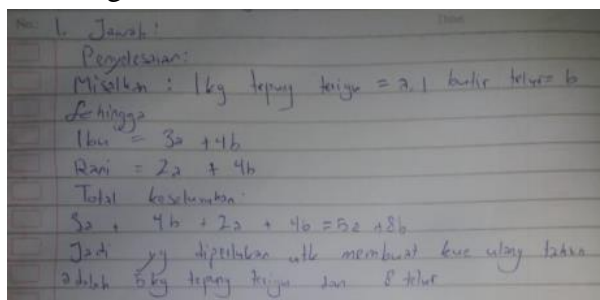 No:
1. Jawab:
Penyelesaian:
Misalkan : 1 kg tepung terigu = a. 1 butir telur = b
Sehingga
Ibu = 3a + 4b
Rani = 2a + 4b
Total keseluruhan:
3a + 4b + 2a + 4b = 5a + 8b
Jadi yg diperlukan utk membuat kue ulang tahun
adalah 5 kg tepung terigu dan 8 telur